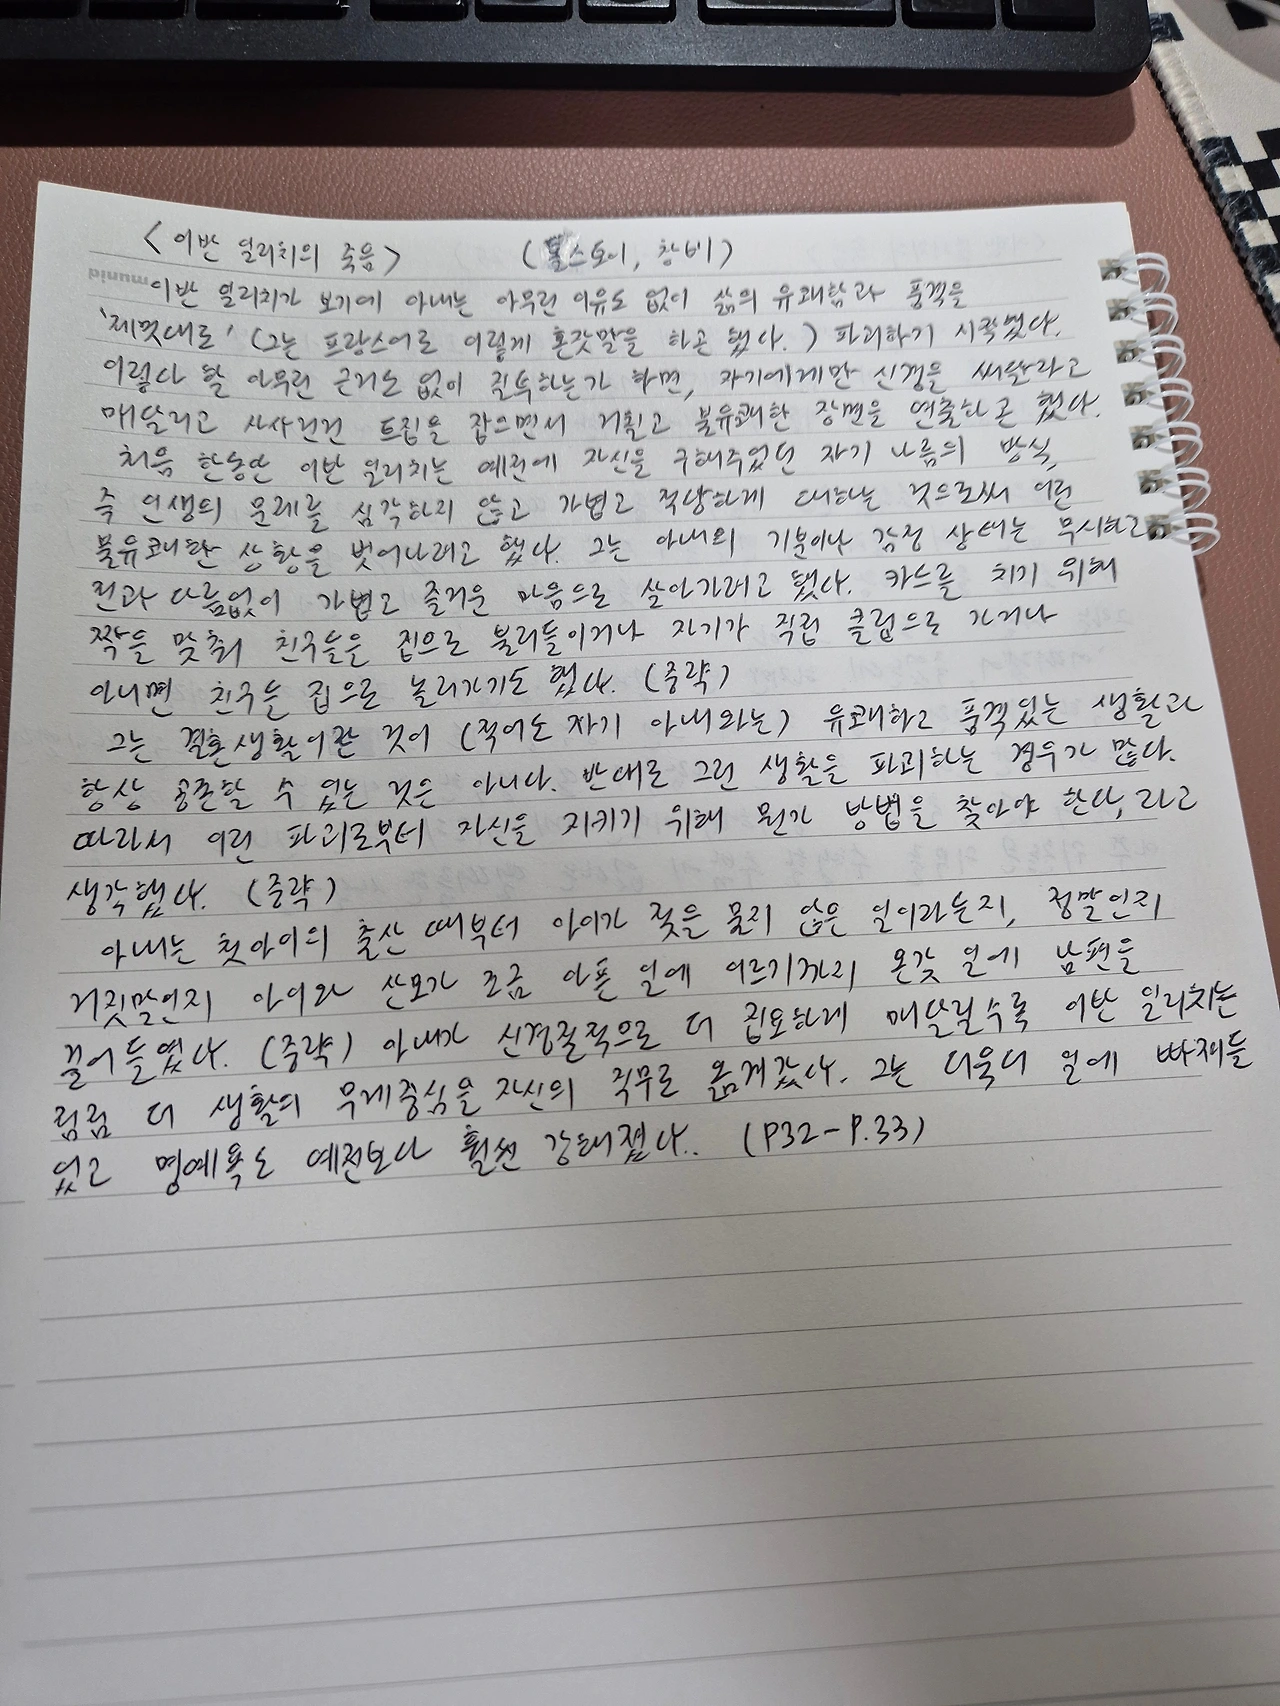 <이반 일리치의 죽음> (톨스토이, 창비)
이반 일리치가 보기에 아내는 아무런 이유도 없이 삶의 유쾌함과 품격을
'제멋대로' (그는 프랑스어로 이렇게 혼잣말을 하곤 했다.) 파괴하기 시작했다.
이렇다 할 아무런 근거도 없이 질투하는가 하면, 자기에게만 신경을 써달라고
매달리고 사사건건 트집을 잡으면서 거칠고 불유쾌한 장면을 연출하곤 했다.
처음 한동안 이반 일리치는 예전에 자신을 구해주었던 자기 나름의 방식,
즉 인생의 문제를 심각하지 않고 가볍고 적당하게 대하는 것으로써 이런
불유쾌한 상황을 벗어나려고 했다. 그는 아내의 기분이나 감정 상태는 무시하고
전과 다름없이 가볍고 즐거운 마음으로 살아가려고 했다. 카드를 치기 위해
짝을 맞춰 친구들을 집으로 불러들이거나 자기가 직접 클럽으로 가거나
아니면 친구들 집으로 놀러가기도 했다. (중략)
그는 결혼생활이란 것이 (적어도 자기 아내와는) 유쾌하고 품격있는 생활과
항상 공존할 수 있는 것은 아니다. 반대로 그런 생활을 파괴하는 경우가 많다.
따라서 이런 파괴로부터 자신을 지키기 위해 뭔가 방법을 찾아야 한다, 라고
생각했다. (중략)
아내는 첫아이의 출산 때부터 아이가 젖을 물지 않은 일이라든지, 정말인지
거짓말인지 아이와 산모가 조금 아픈 일에 이르기까지 온갖 일에 남편을
끌어들였다. (중략) 아내가 신경질적으로 더 집요하게 매달릴수록 이반 일리치는
점점 더 생활의 무게중심을 자신의 직무로 옮겨갔다. 그는 더욱더 일에 빠져들
었고 명예욕도 예전보다 훨씬 강해졌다.. (P32-P.33)
munid